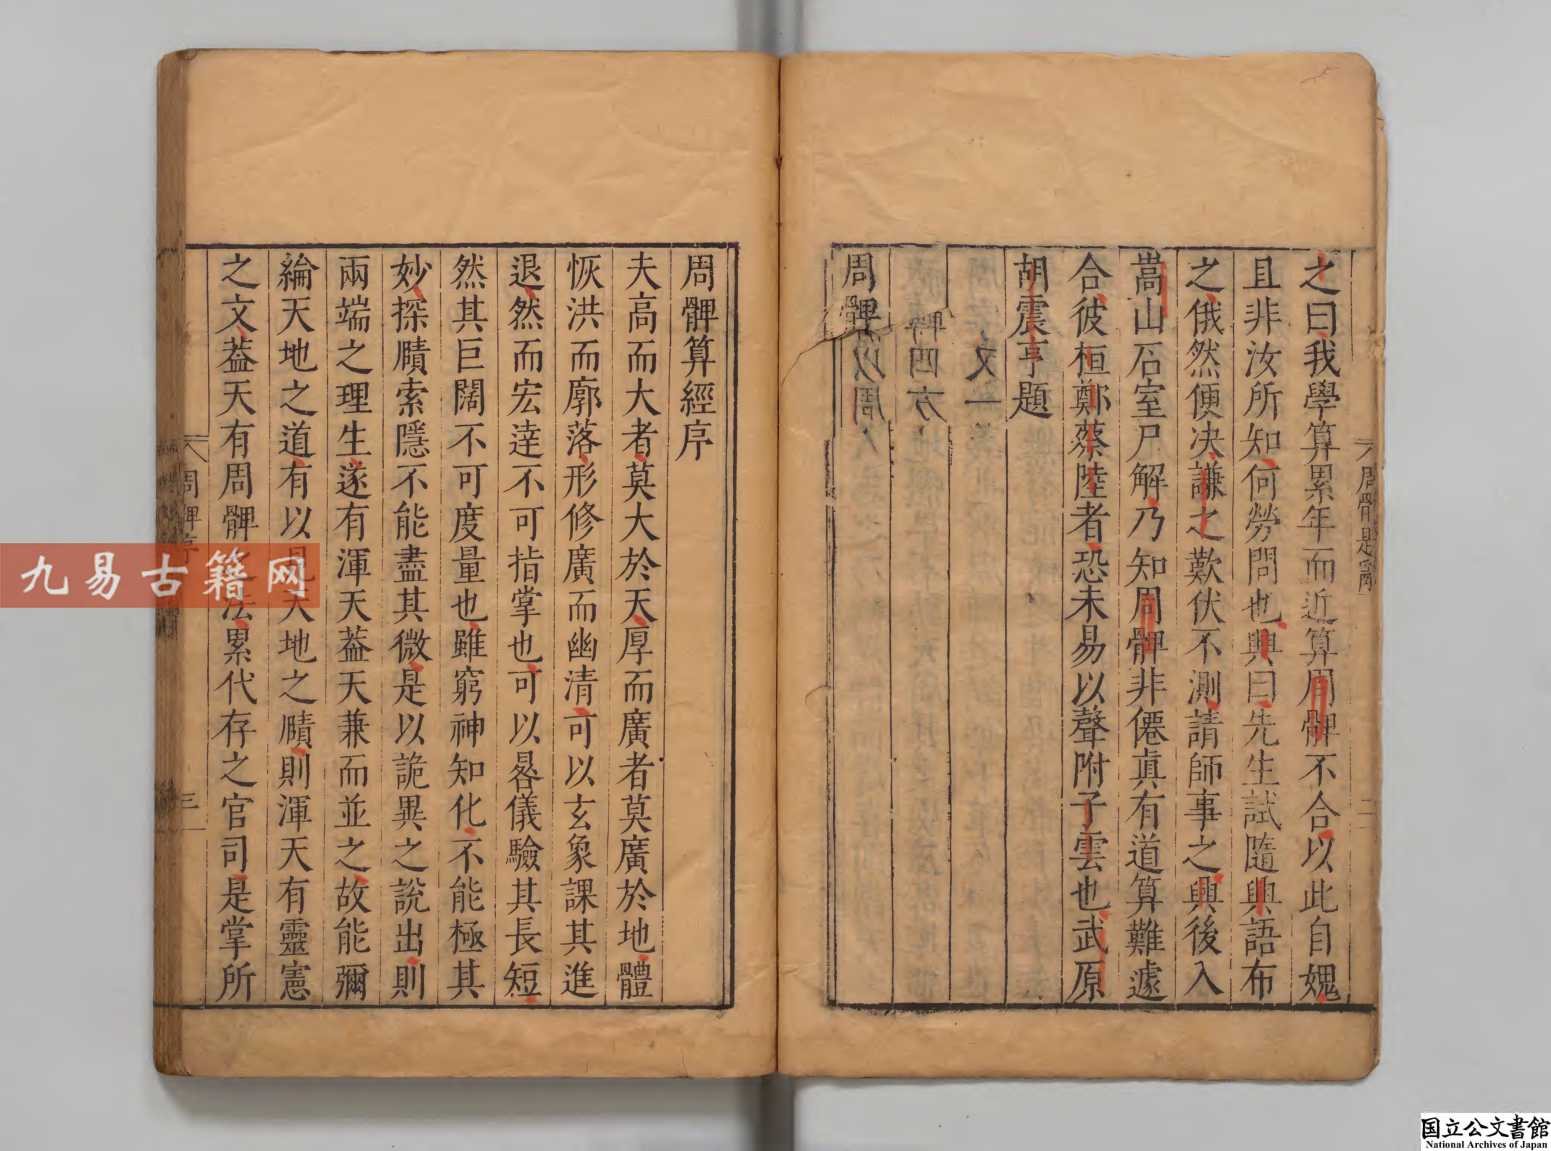 之曰我學算累年而近算周髀不合以此自媿
且非汝所知何勞問也興曰先生試隨興語布
之俄然便決謙之歎伏不測請師事之興後入
嵩山石室尸解乃知周髀非僊眞有道算難遽
合彼桓鄭蔡陸者恐未易以聲附子雲也武原
胡震亨題
又一
四方
周髀以周
周髀題辭
二
周髀算經序
夫高而大者莫大於天厚而廣者莫廣於地體
恢洪而廓落形修廣而幽清可以玄象課其進
退然而宏逹不可指掌也可以晷儀驗其長短
然其巨闊不可度量也雖窮神知化不能極其
妙探賾索隱不能盡其微是以詭異之說出則
兩端之理生遂有渾天葢天兼而並之故能彌
綸天地之道有以見天地之賾則渾天有靈憲
之文葢天有周髀之法累代存之官司是掌所
周髀序
三
九易古籍网
国立公文書館
National Archives of Japan